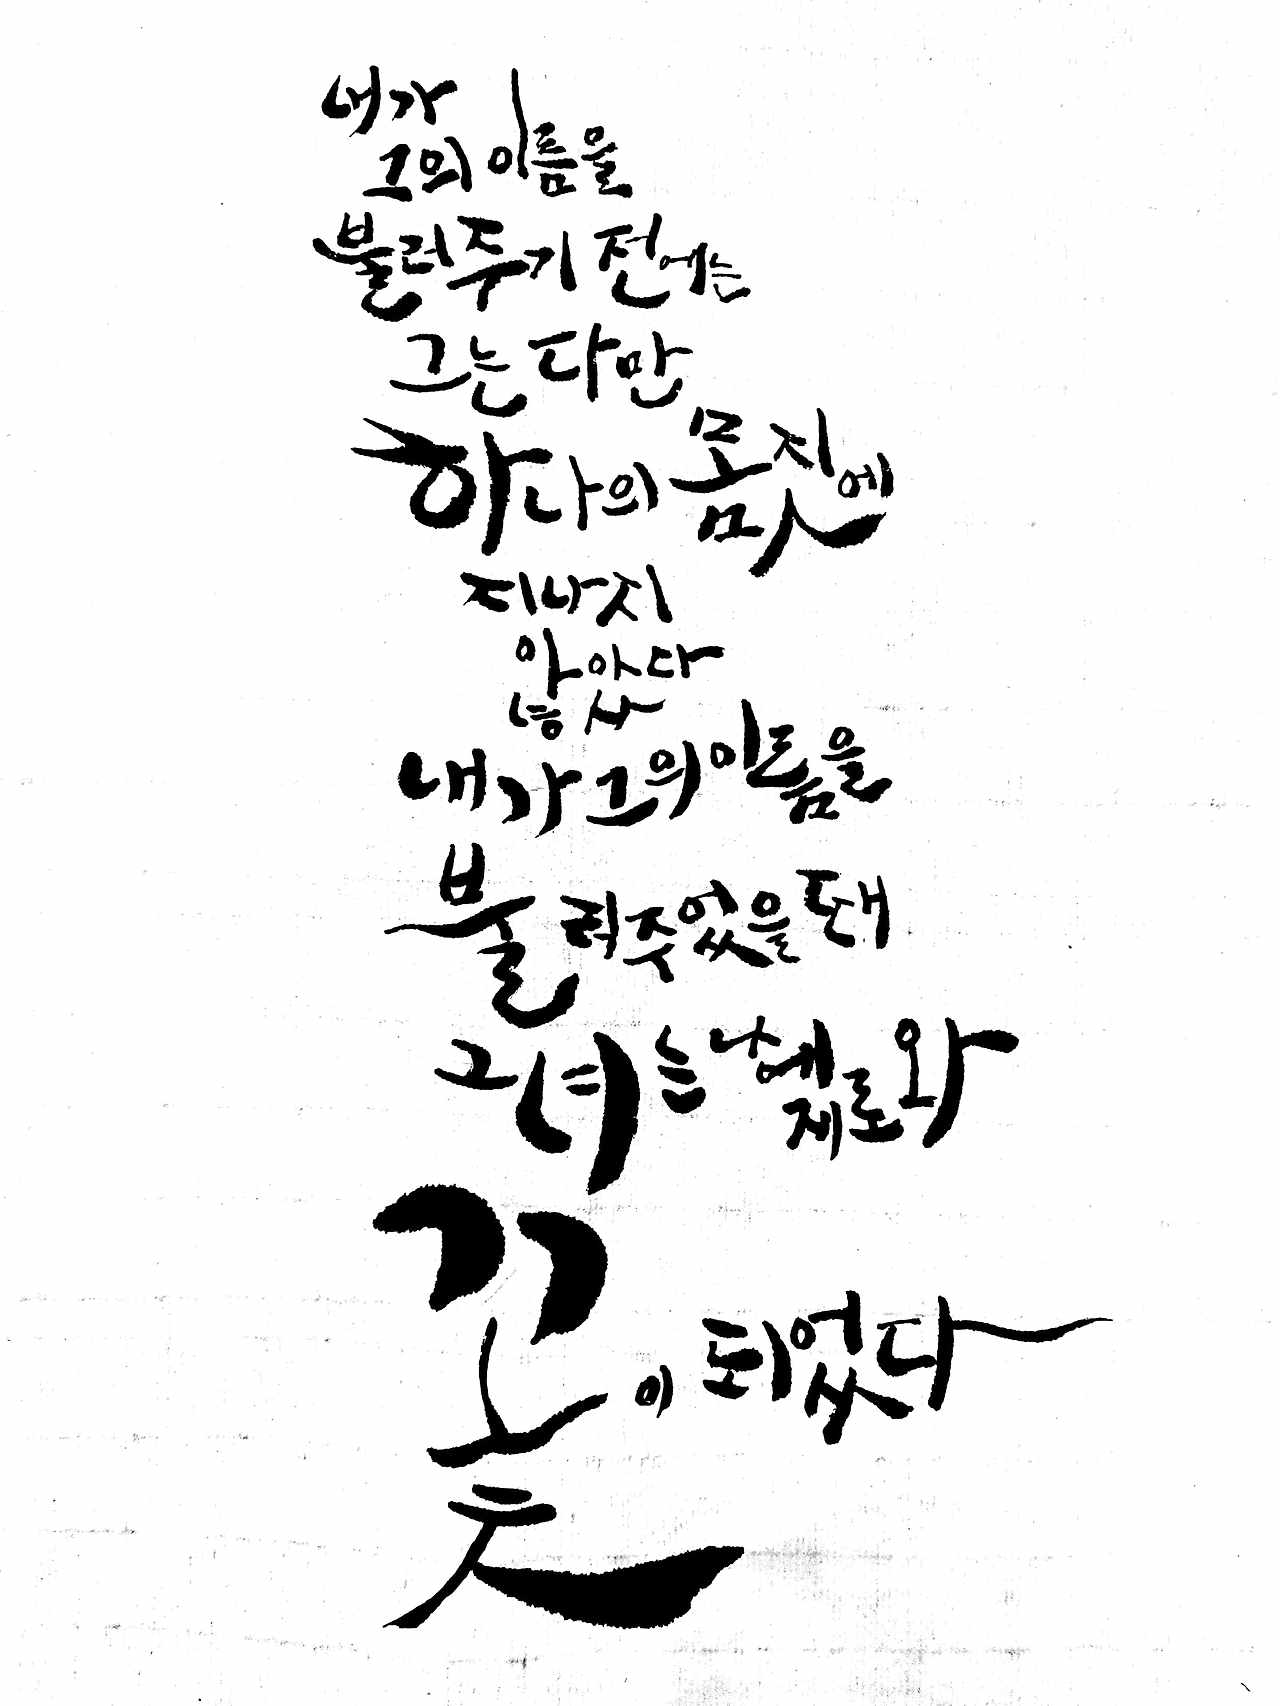 내가
그의 이름을
불러주기 전에는
그는 다만
하나의 몸짓에
지나지
않았다
내가 그의 이름을
불러주었을 때
그녀는 나에게로 와
꽃이 되었다